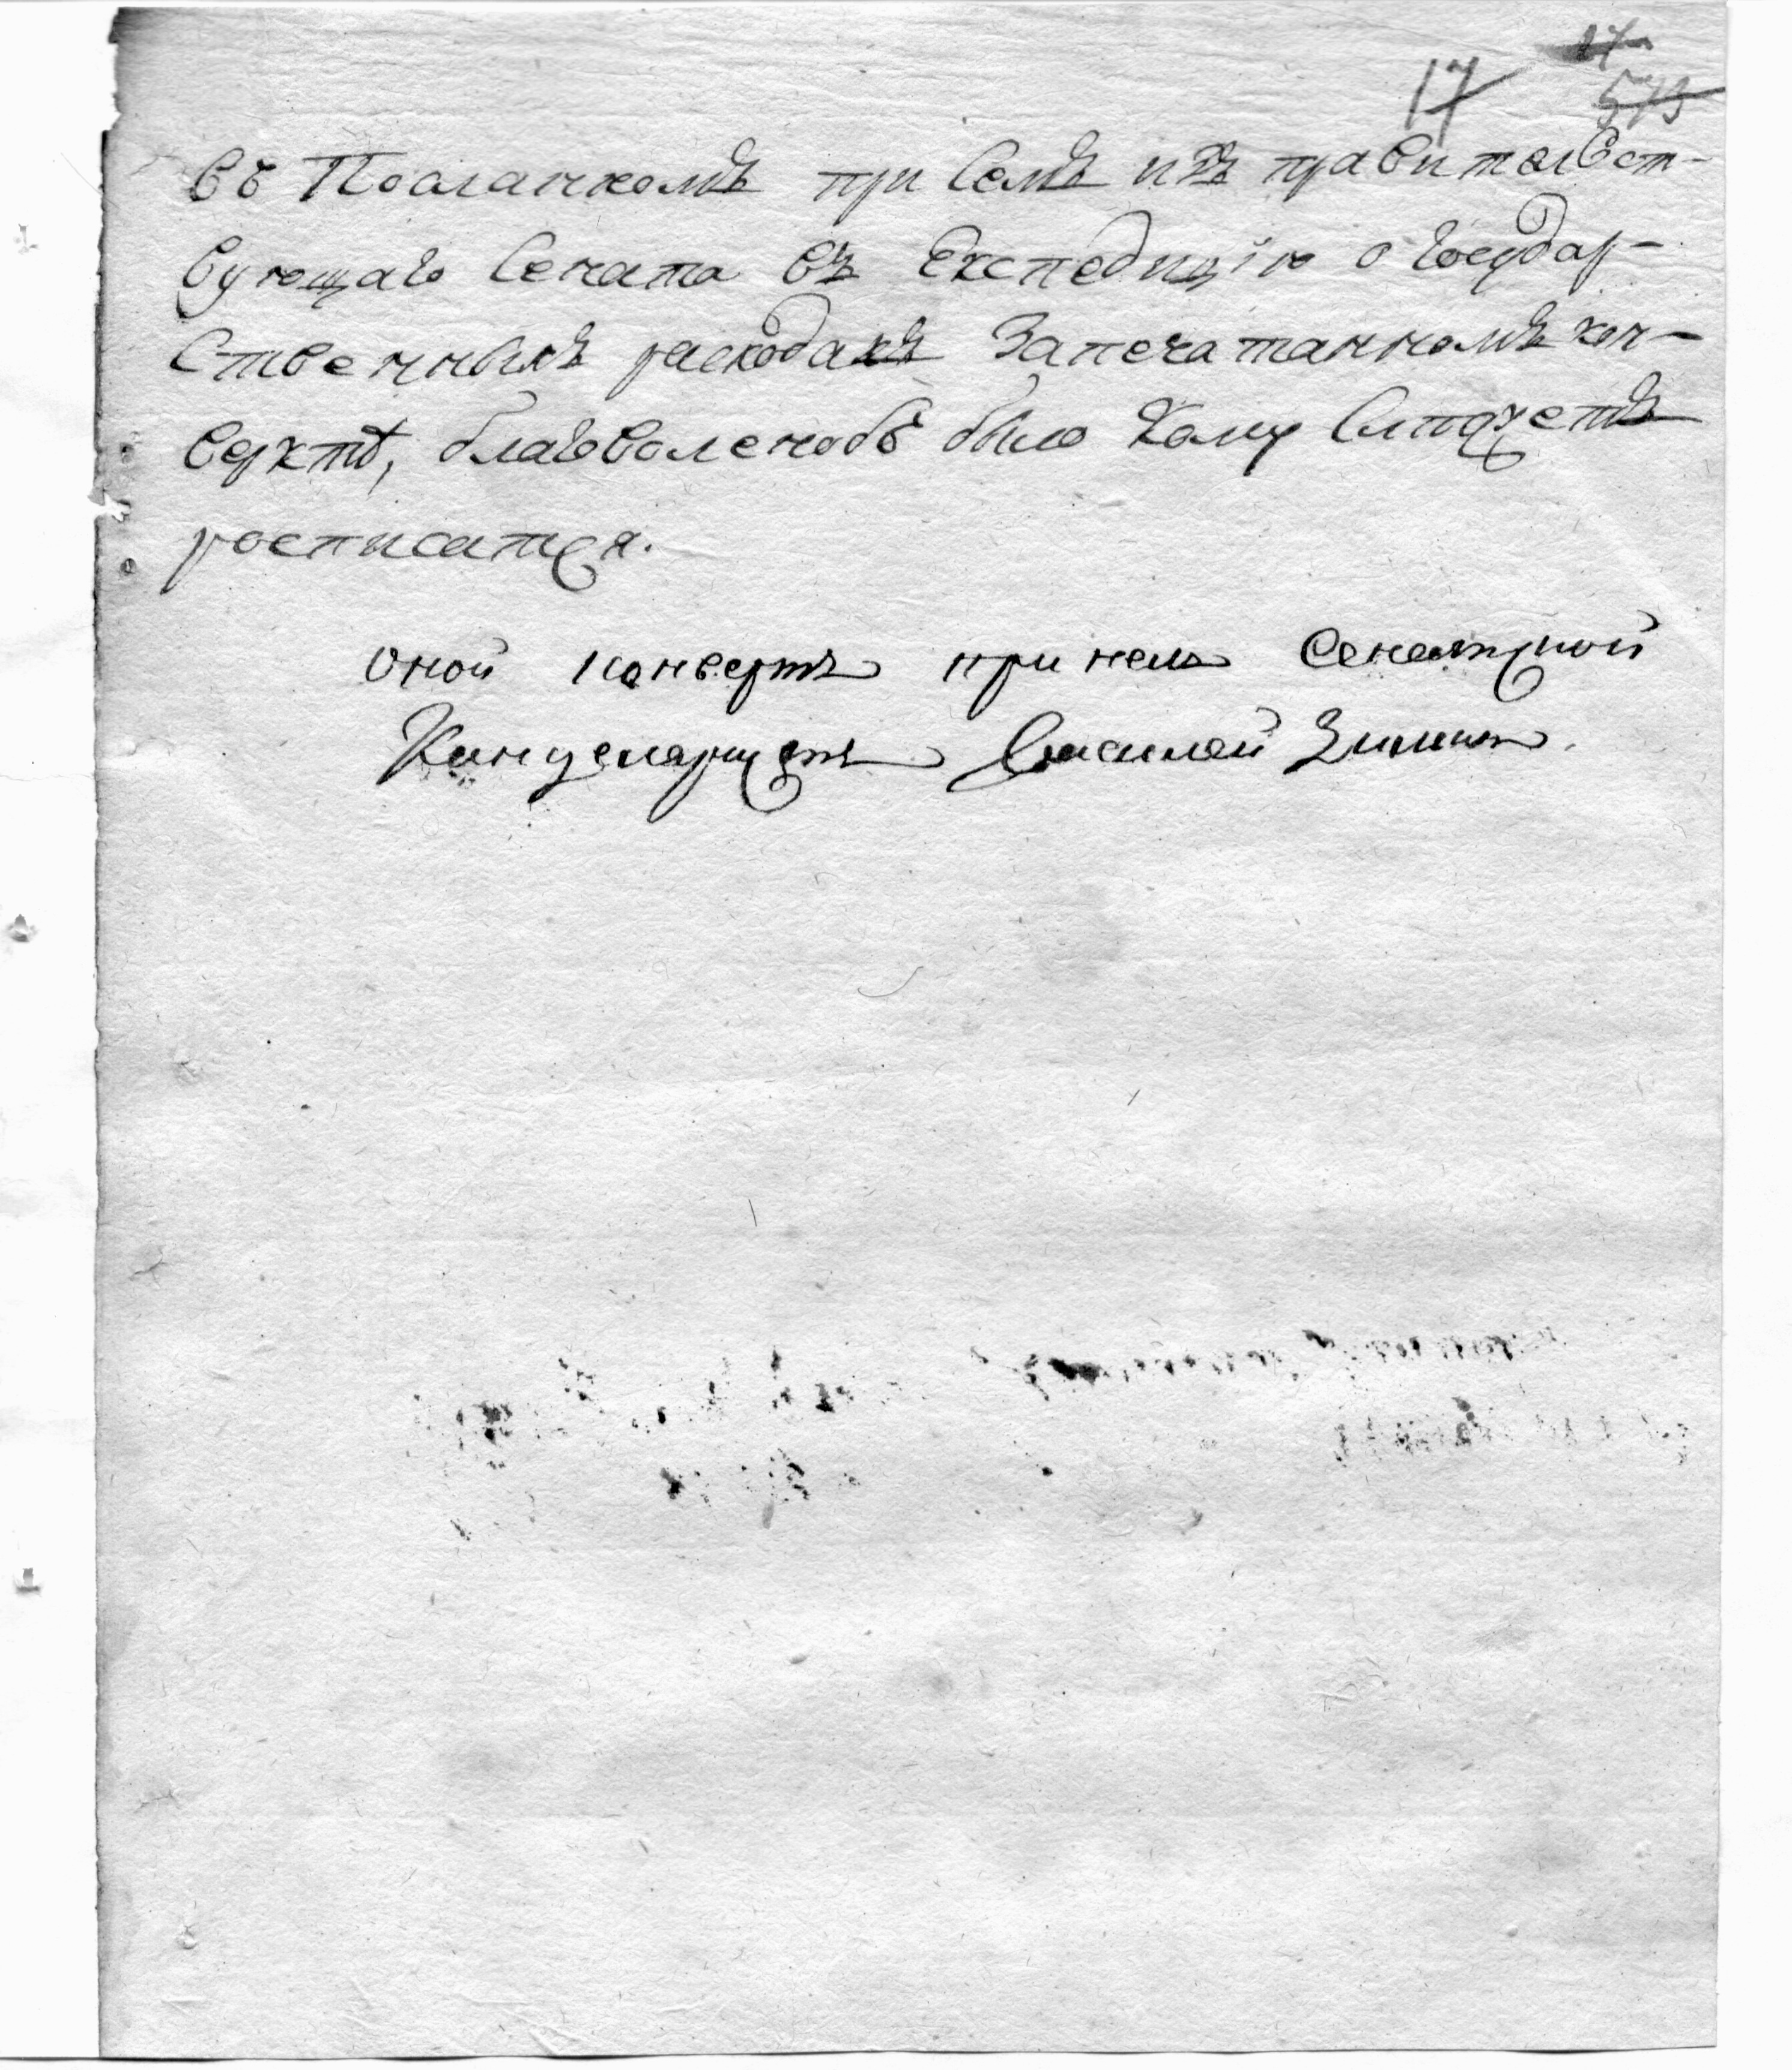 17
573
въ Посланномъ при Семъ изъ правителст-
вующаго Сената въ Експедицїю о государ-
ственныхъ расходахъ Запечатанномъ кон-
вертѣ, благоволенобъ было Кому Слѣдуетъ
росписатся.
оной конвертъ принелъ Сенатской
Канцеляристъ Василей Зиминъ.